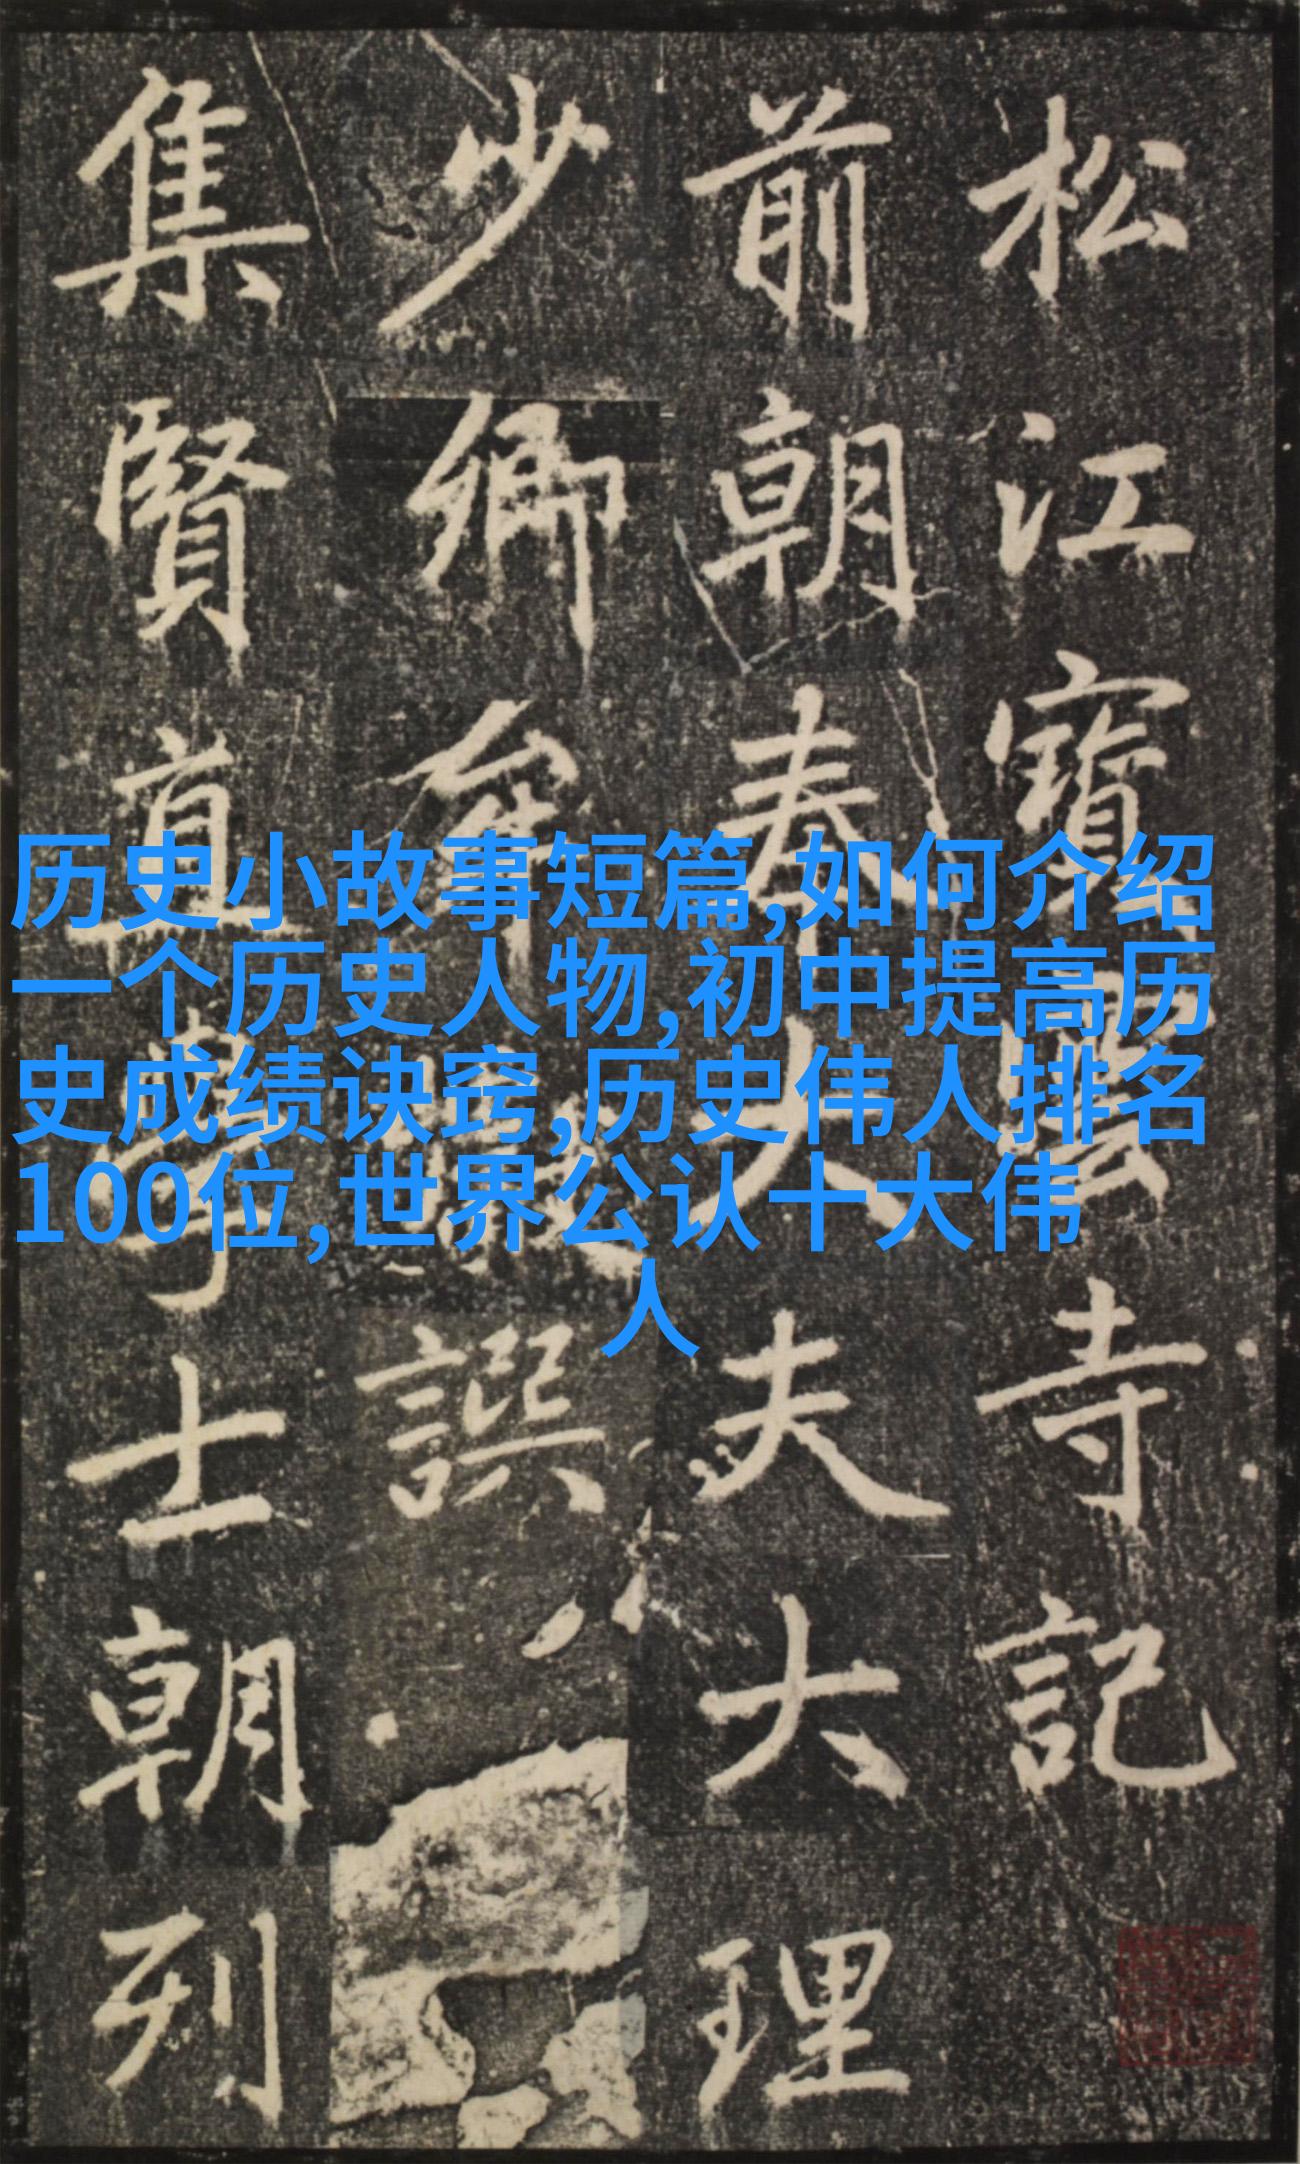 松江寶雲寺記
前朝奉大夫大理
少卿牟譔
集賢直學士朝列
历史小故事短篇,如何介绍
一个历史人物,初中提高历
史成绩诀窍,历史伟人排名
100位,世界公认十大伟
人